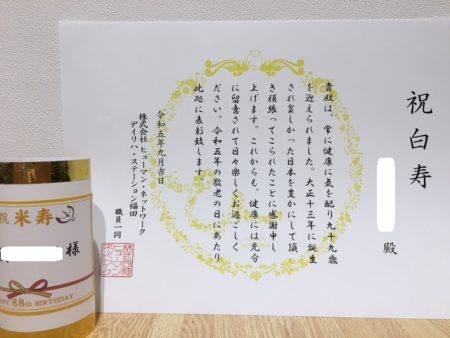 祝白寿
殿
貴殿は、常に健康に気を配り九十九歳
を迎えられました。大正十三年に誕生
され貧しかった日本を豊かにして頂
き頑張ってこられたことに感謝申し
上げます。これからも、健康には充分
に留意されて日々楽しくお過ごしく
ださい。令和五年の敬老の日にあたり
此処に表彰致します
令和五年九月吉日
株式会社ヒューマン・ネットワーク
デイリハ・ステーション福田
職員一同
祝 米寿
様
88th BIRTHDAY